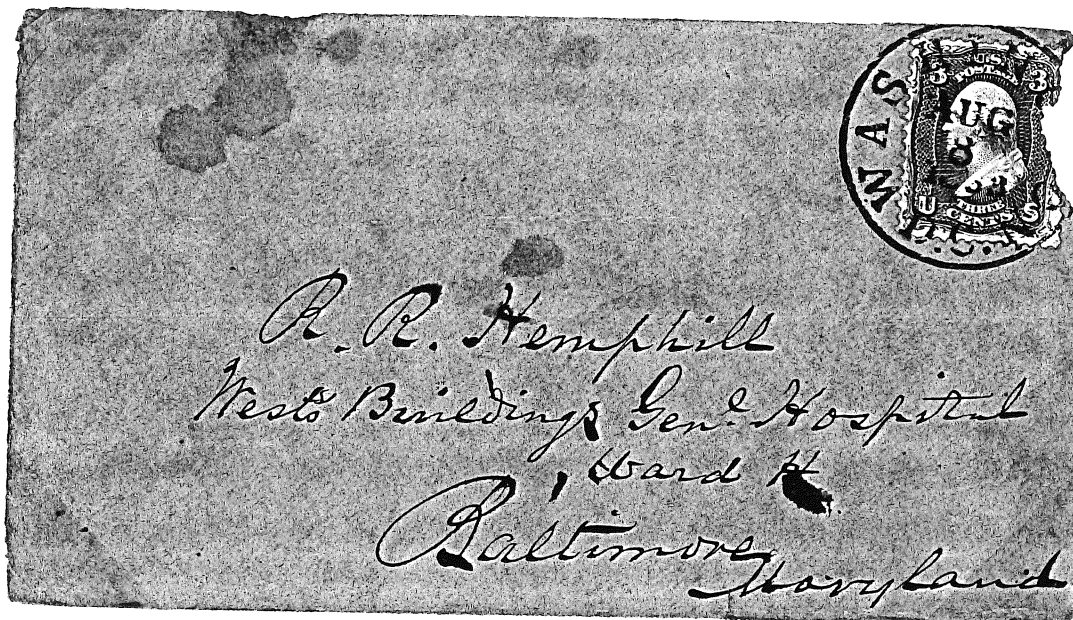 WAS
D.C.
AUG
8
3 U.S. 3
POSTAGE
U THREE S
CENTS
R. R. Hemphill
West's Buildings Genl. Hospital
Ward H
Baltimore
Maryland